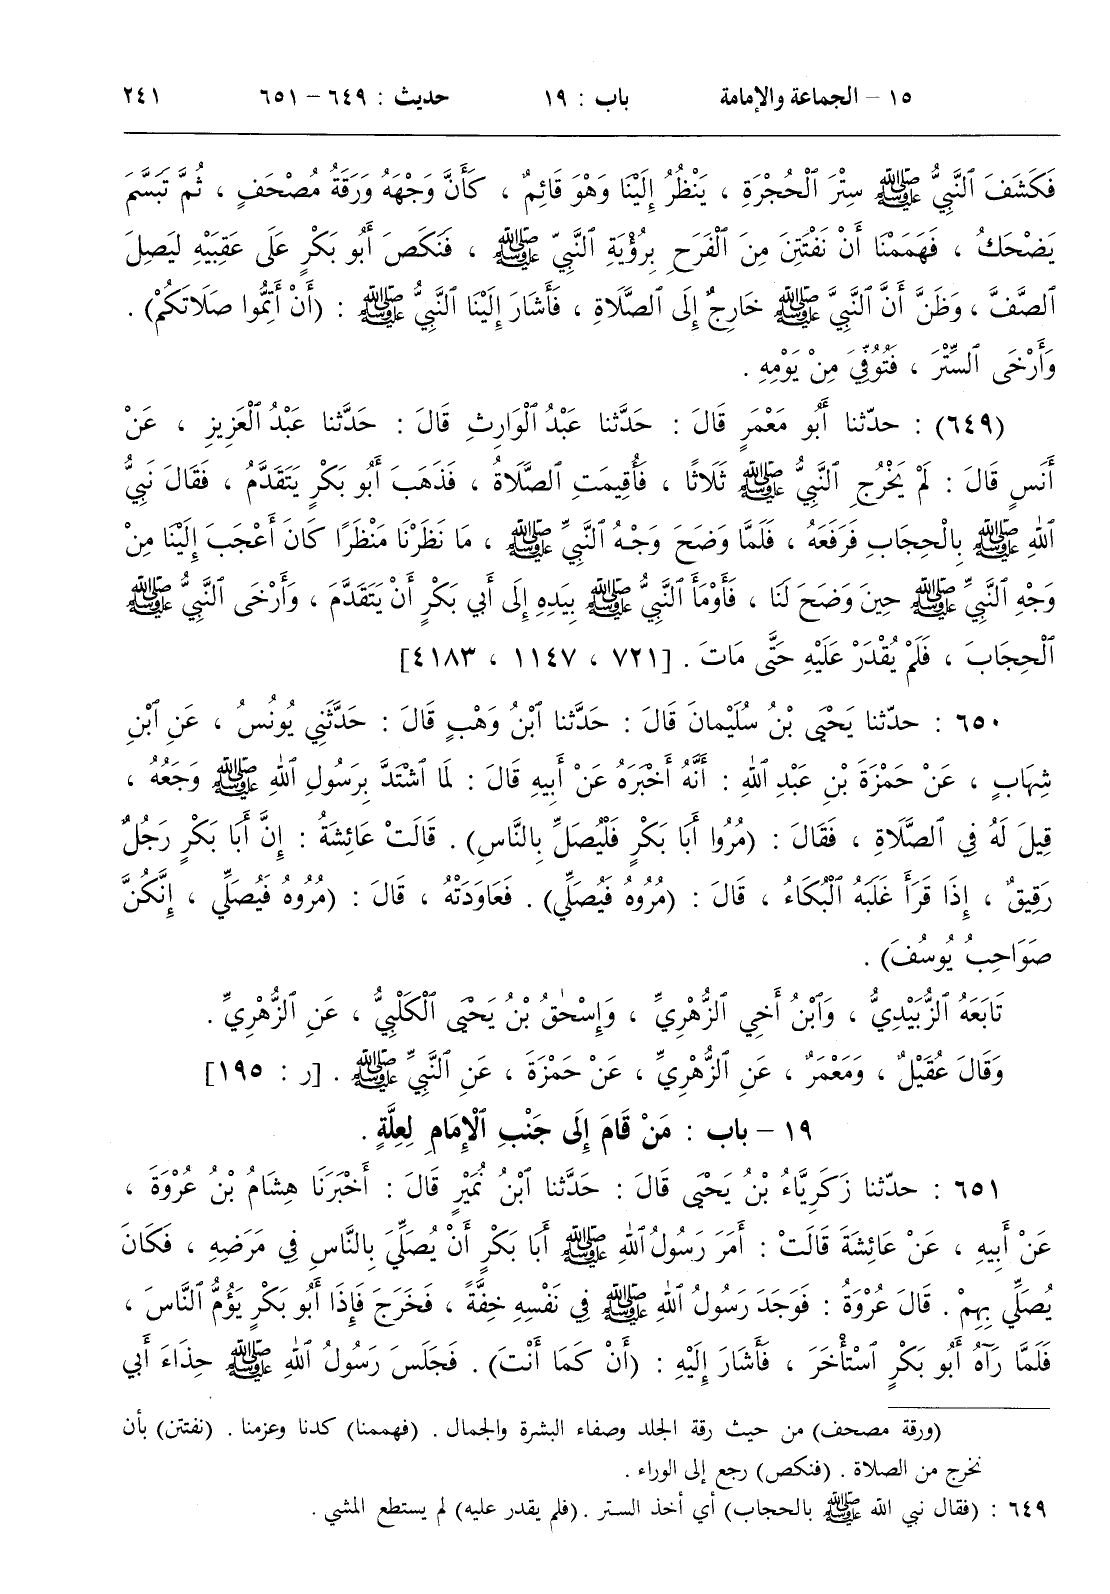 ١٥ – الجماعة والإمامة باب : ١٩ حديث : ٦٤٩ – ٦٥١ ٢٤١
فَكَشَفَ ٱلنَّبِيُّ ﷺ سِتْرَ ٱلْحُجْرَةِ ، يَنْظُرُ إِلَيْنَا وَهْوَ قَائِمٌ ، كَأَنَّ وَجْهَهُ وَرَقَةُ مُصْحَفٍ ، ثُمَّ تَبَسَّمَ
يَضْحَكُ ، فَهَمَمْنَا أَنْ نَفْتَتِنَ مِنَ ٱلْفَرَحِ بِرُؤْيَةِ ٱلنَّبِيِّ ﷺ ، فَنَكَصَ أَبُو بَكْرٍ عَلَى عَقِبَيْهِ لِيَصِلَ
ٱلصَّفَّ ، وَظَنَّ أَنَّ ٱلنَّبِيَّ ﷺ خَارِجٌ إِلَى ٱلصَّلَاةِ ، فَأَشَارَ إِلَيْنَا ٱلنَّبِيُّ ﷺ : (أَنْ أَتِمُّوا صَلَاتَكُمْ) .
وَأَرْخَى ٱلسِّتْرَ ، فَتُوُفِّيَ مِنْ يَوْمِهِ .
(٦٤٩) : حدّثنا أَبُو مَعْمَرٍ قَالَ : حَدَّثنا عَبْدُ ٱلْوَارِثِ قَالَ : حَدَّثنا عَبْدُ ٱلْعَزِيزِ ، عَنْ
أَنَسٍ قَالَ : لَمْ يَخْرُجِ ٱلنَّبِيُّ ﷺ ثَلَاثًا ، فَأُقِيمَتِ ٱلصَّلَاةُ ، فَذَهَبَ أَبُو بَكْرٍ يَتَقَدَّمُ ، فَقَالَ نَبِيُّ
ٱللهِ ﷺ بِالْحِجَابِ فَرَفَعَهُ ، فَلَمَّا وَضَحَ وَجْهُ ٱلنَّبِيِّ ﷺ ، مَا نَظَرْنَا مَنْظَرًا كَانَ أَعْجَبَ إِلَيْنَا مِنْ
وَجْهِ ٱلنَّبِيِّ ﷺ حِينَ وَضَحَ لَنَا ، فَأَوْمَأَ ٱلنَّبِيُّ ﷺ بِيَدِهِ إِلَى أَبِي بَكْرٍ أَنْ يَتَقَدَّمَ ، وَأَرْخَى ٱلنَّبِيُّ ﷺ
ٱلْحِجَابَ ، فَلَمْ يُقْدَرْ عَلَيْهِ حَتَّى مَاتَ . [٧٢١ ، ١١٤٧ ، ٤١٨٣]
٦٥٠ : حدّثنا يَحْيَى بْنُ سُلَيْمانَ قَالَ : حَدَّثنا ٱبْنُ وَهْبٍ قَالَ : حَدَّثَنِي يُونُسُ ، عَنِ ٱبْنِ
شِهَابٍ ، عَنْ حَمْزَةَ بْنِ عَبْدِ ٱللهِ : أَنَّهُ أَخْبَرَهُ عَنْ أَبِيهِ قَالَ : لَمَّا ٱشْتَدَّ بِرَسُولِ ٱللهِ ﷺ وَجَعُهُ ،
قِيلَ لَهُ فِي ٱلصَّلَاةِ ، فَقَالَ : (مُرُوا أَبَا بَكْرٍ فَلْيُصَلِّ بِالنَّاسِ) . قَالَتْ عَائِشَةُ : إِنَّ أَبَا بَكْرٍ رَجُلٌ
رَقِيقٌ ، إِذَا قَرَأَ غَلَبَهُ ٱلْبُكَاءُ ، قَالَ : (مُرُوهُ فَيُصَلِّي) . فَعَاوَدَتْهُ ، قَالَ : (مُرُوهُ فَيُصَلِّي ، إِنَّكُنَّ
صَوَاحِبُ يُوسُفَ) .
تَابَعَهُ ٱلزُّبَيْدِيُّ ، وَٱبْنُ أَخِي ٱلزُّهْرِيِّ ، وَإِسْحٰقُ بْنُ يَحْيَى ٱلْكَلْبِيُّ ، عَنِ ٱلزُّهْرِيِّ .
وَقَالَ عُقَيْلٌ ، وَمَعْمَرٌ ، عَنِ ٱلزُّهْرِيِّ ، عَنْ حَمْزَةَ ، عَنِ ٱلنَّبِيِّ ﷺ . [ر : ١٩٥]
١٩ – باب : مَنْ قَامَ إِلَى جَنْبِ ٱلْإِمَامِ لِعِلَّةٍ .
٦٥١ : حدّثنا زَكَرِيَّاءُ بْنُ يَحْيَى قَالَ : حَدَّثنا ٱبْنُ نُمَيْرٍ قَالَ : أَخْبَرَنَا هِشَامُ بْنُ عُرْوَةَ ،
عَنْ أَبِيهِ ، عَنْ عَائِشَةَ قَالَتْ : أَمَرَ رَسُولُ ٱللهِ ﷺ أَبَا بَكْرٍ أَنْ يُصَلِّيَ بِالنَّاسِ فِي مَرَضِهِ ، فَكَانَ
يُصَلِّي بِهِمْ . قَالَ عُرْوَةُ : فَوَجَدَ رَسُولُ ٱللهِ ﷺ فِي نَفْسِهِ خِفَّةً ، فَخَرَجَ فَإِذَا أَبُو بَكْرٍ يَؤُمُّ ٱلنَّاسَ ،
فَلَمَّا رَآهُ أَبُو بَكْرٍ ٱسْتَأْخَرَ ، فَأَشَارَ إِلَيْهِ : (أَنْ كَمَا أَنْتَ) . فَجَلَسَ رَسُولُ ٱللهِ ﷺ حِذَاءَ أَبِي
(ورقة مصحف) من حيث رقة الجلد وصفاء البشرة والجمال . (فهممنا) كدنا وعزمنا . (نفتتن) بأن
نخرج من الصلاة . (فنكص) رجع إلى الوراء .
٦٤٩ : (فقال نبي الله ﷺ بالحجاب) أي أخذ الستر . (فلم يقدر عليه) لم يستطع المشي .